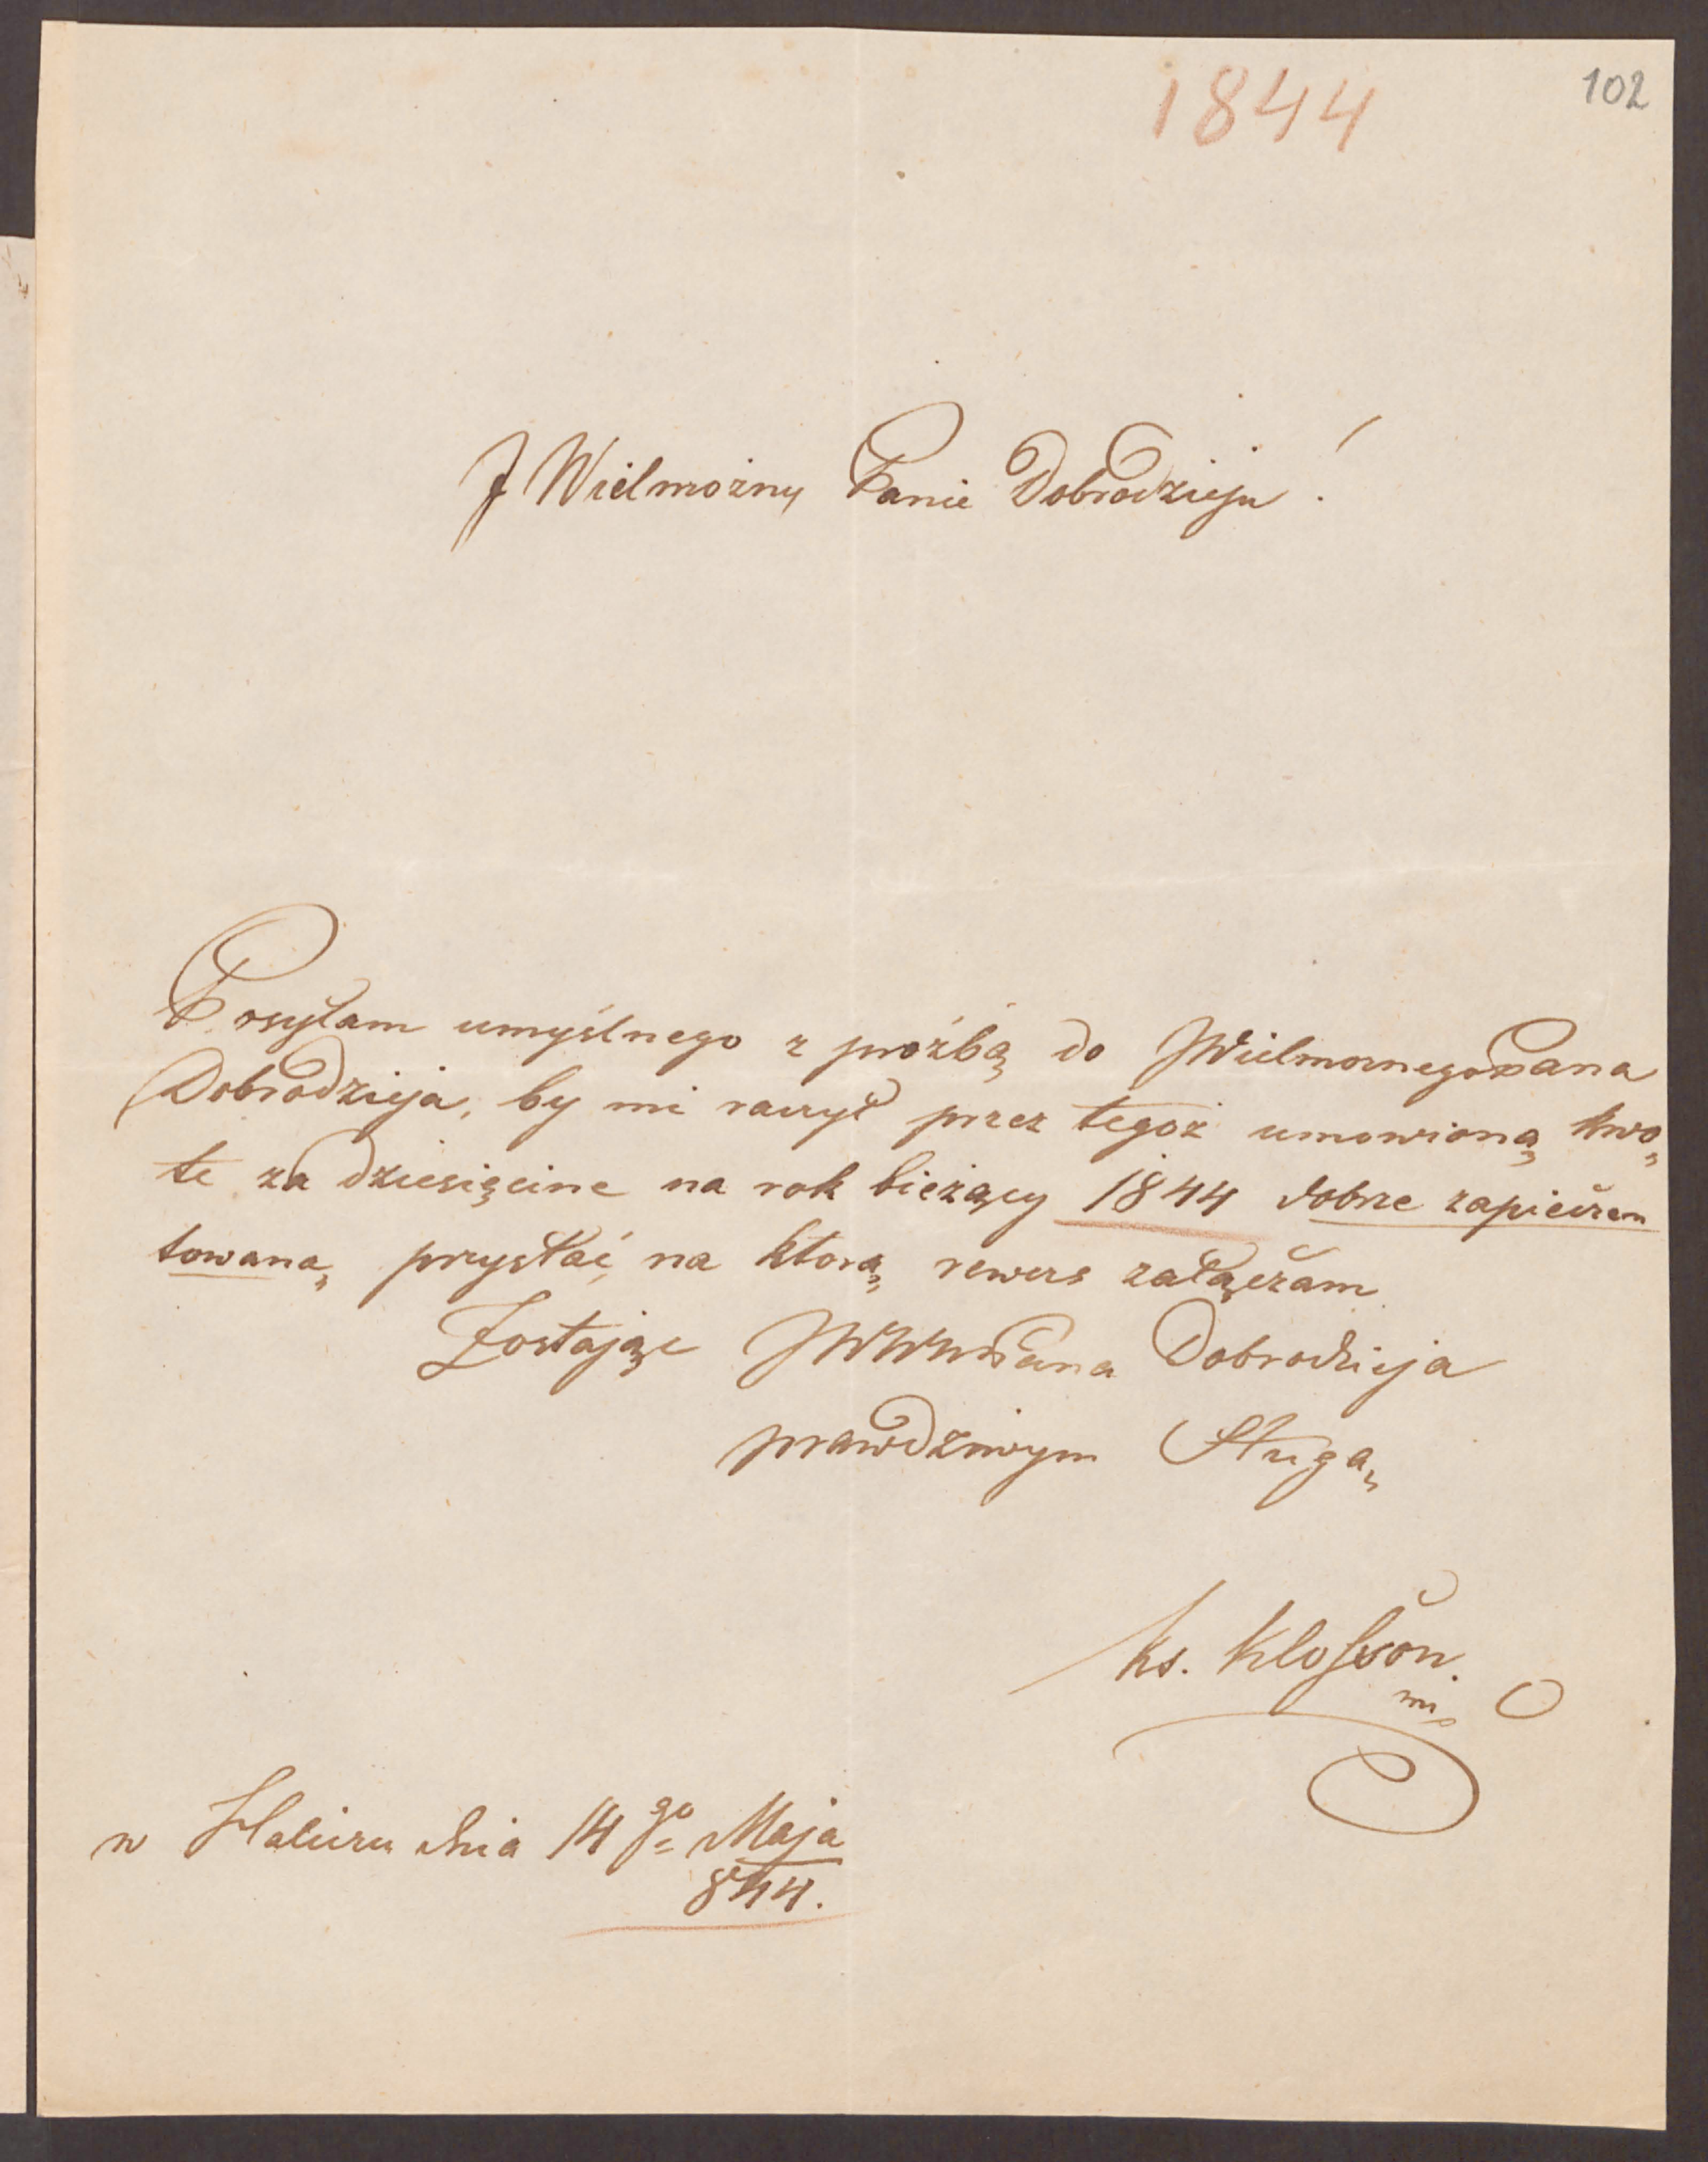 1844
102
J Wielmożny Panie Dobrodzieju!
Posyłam umyślnego z prożbą do JWielmożnego Pana
Dobrodzieja, by mi raczył przez tegoż umowioną kwo„
te za dziesięcine na rok bieżący 1844 dobrze zapieczen
towaną przysłać, na ktorą rewers załączam
Zostając JWWM Pana Dobrodzieja
prawdziwym Sługą
ks. Klosson
mp
w dnia 14go Maja
844.